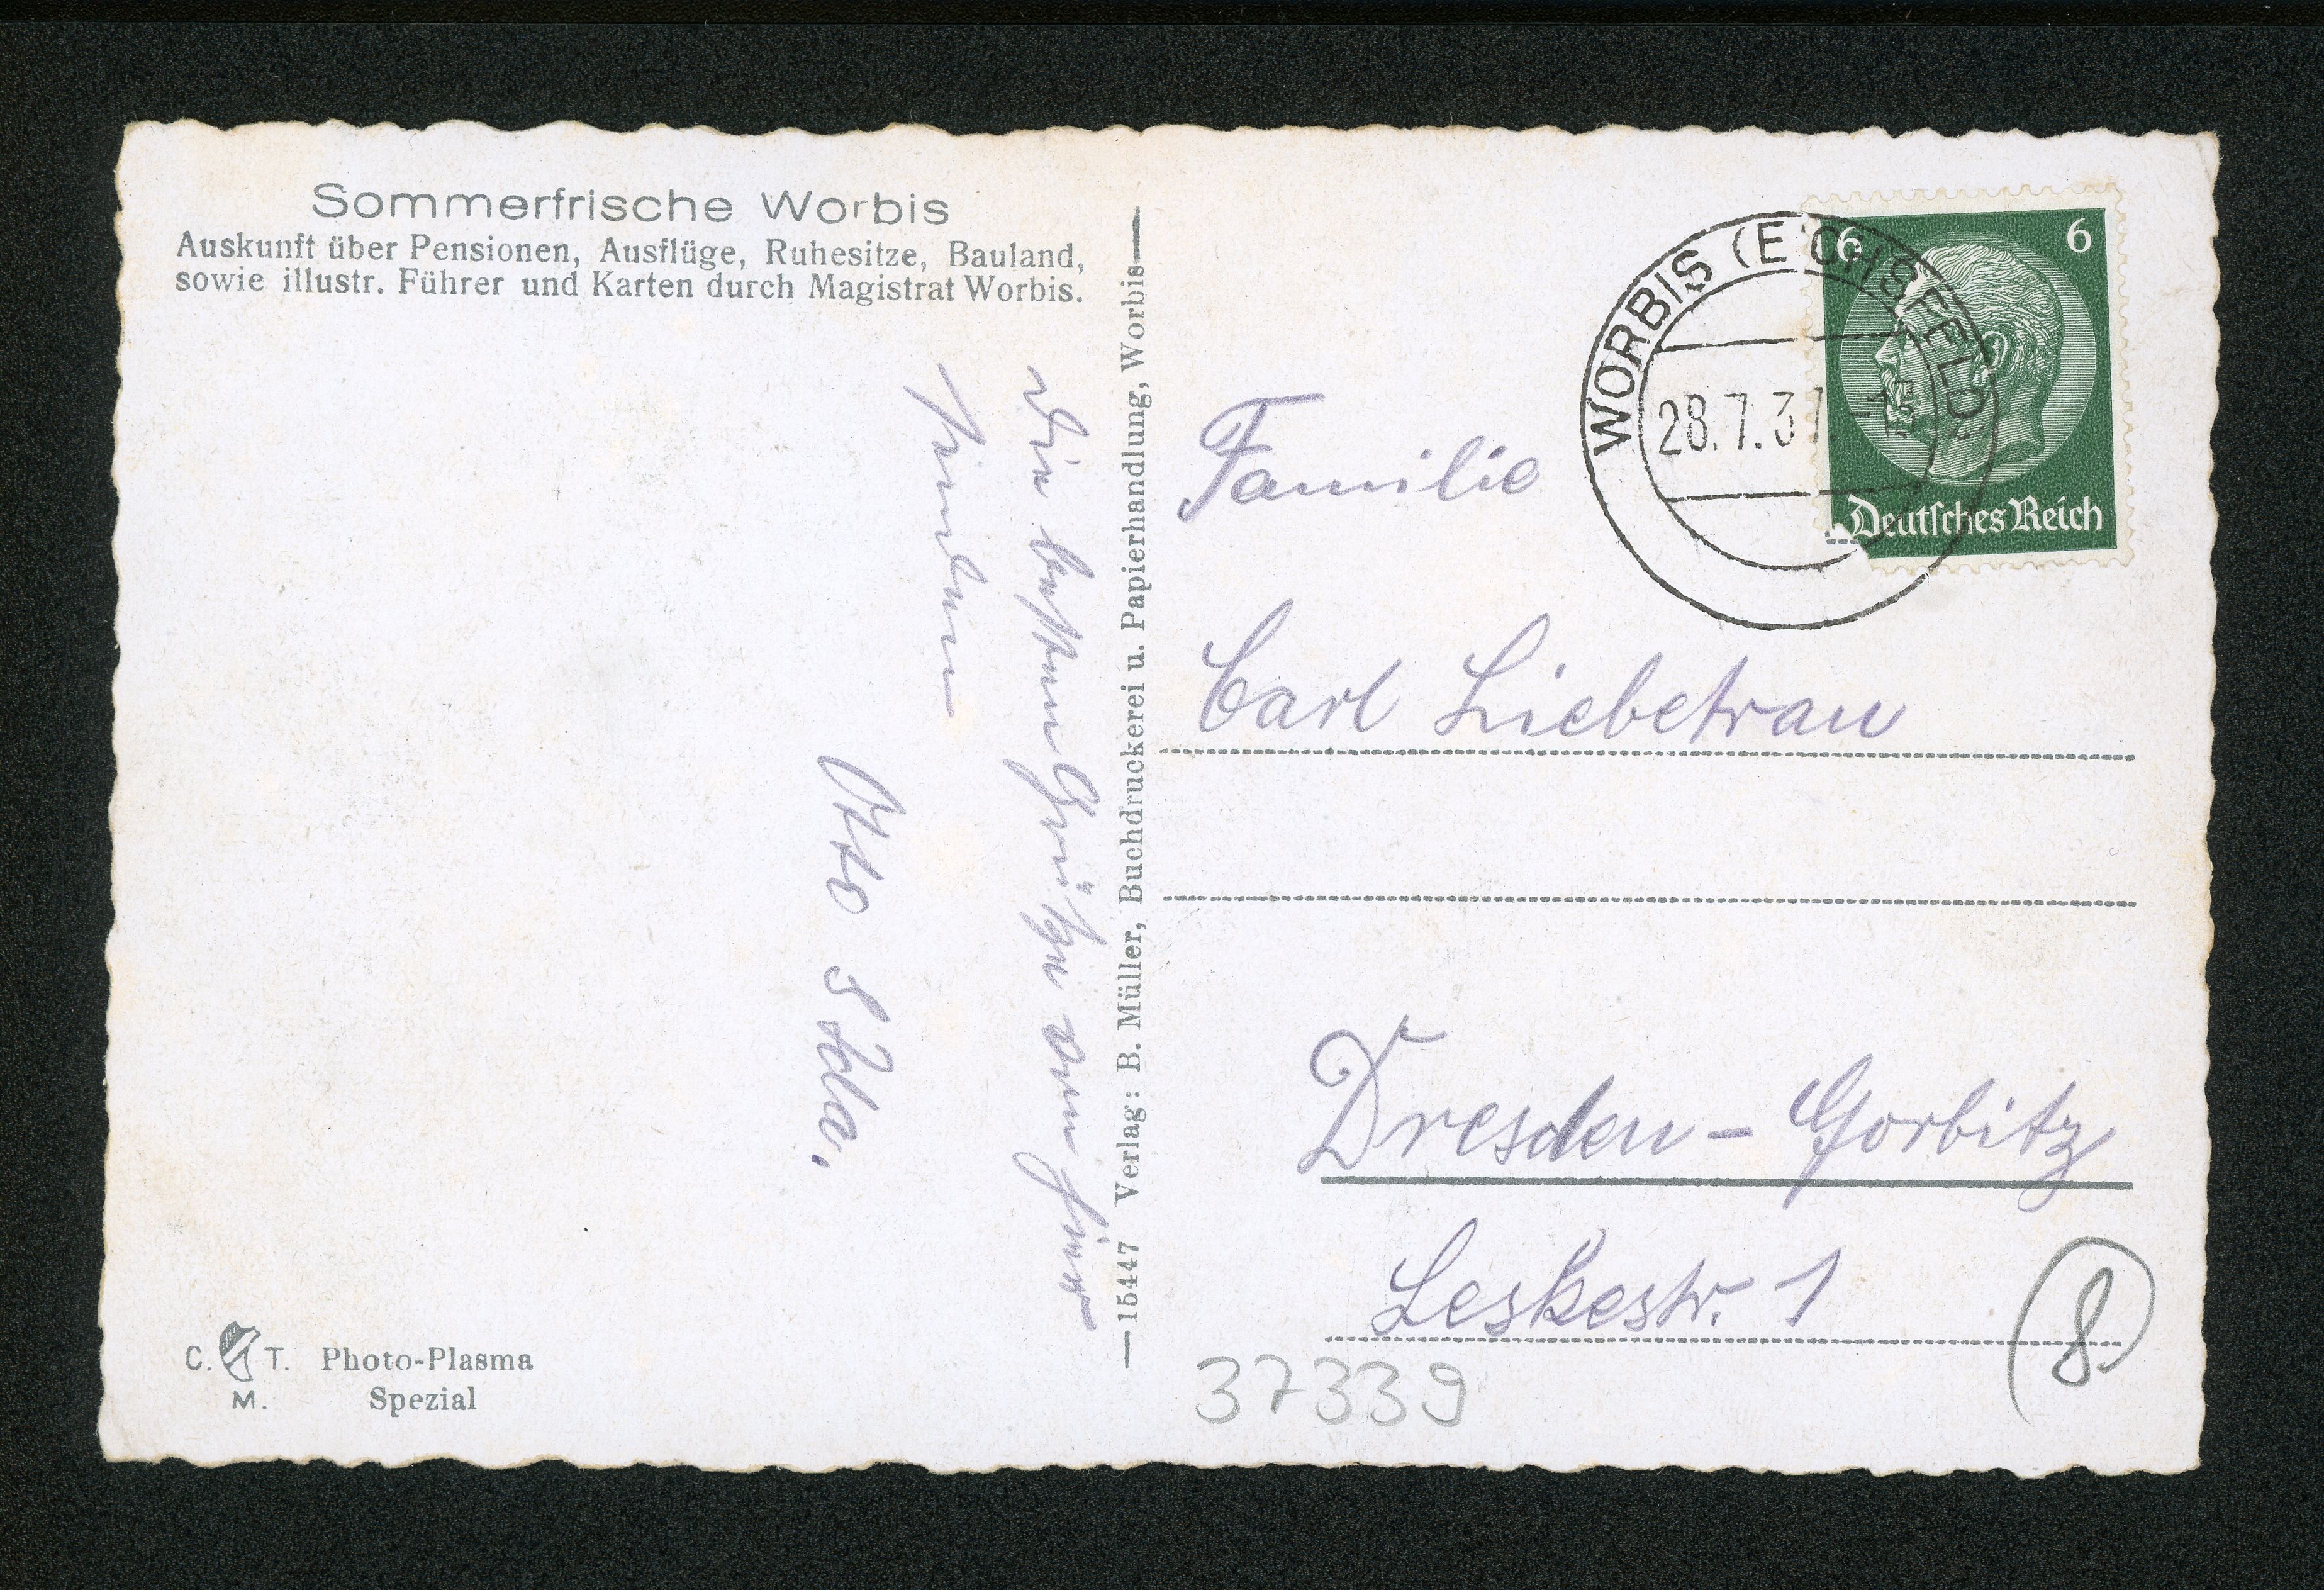 Sommerfrische Worbis
Auskunft über Pensionen, Ausflüge, Ruhesitze, Bauland,
sowie illustr. Führer und Karten durch Magistrat Worbis.
Die besten Grüße von hier
senden
Otto
C. T. Photo-Plasma
M. Spezial
15447 Verlag: B. Müller, Buchdruckerei u. Papierhandlung, Worbis
WORBIS (EICHSFELD)
28.7.37.-13
6 6
Deutsches Reich
Familie
Carl Liebetrau
Dresden-Gorbitz
Leskestr. 1
8
37339